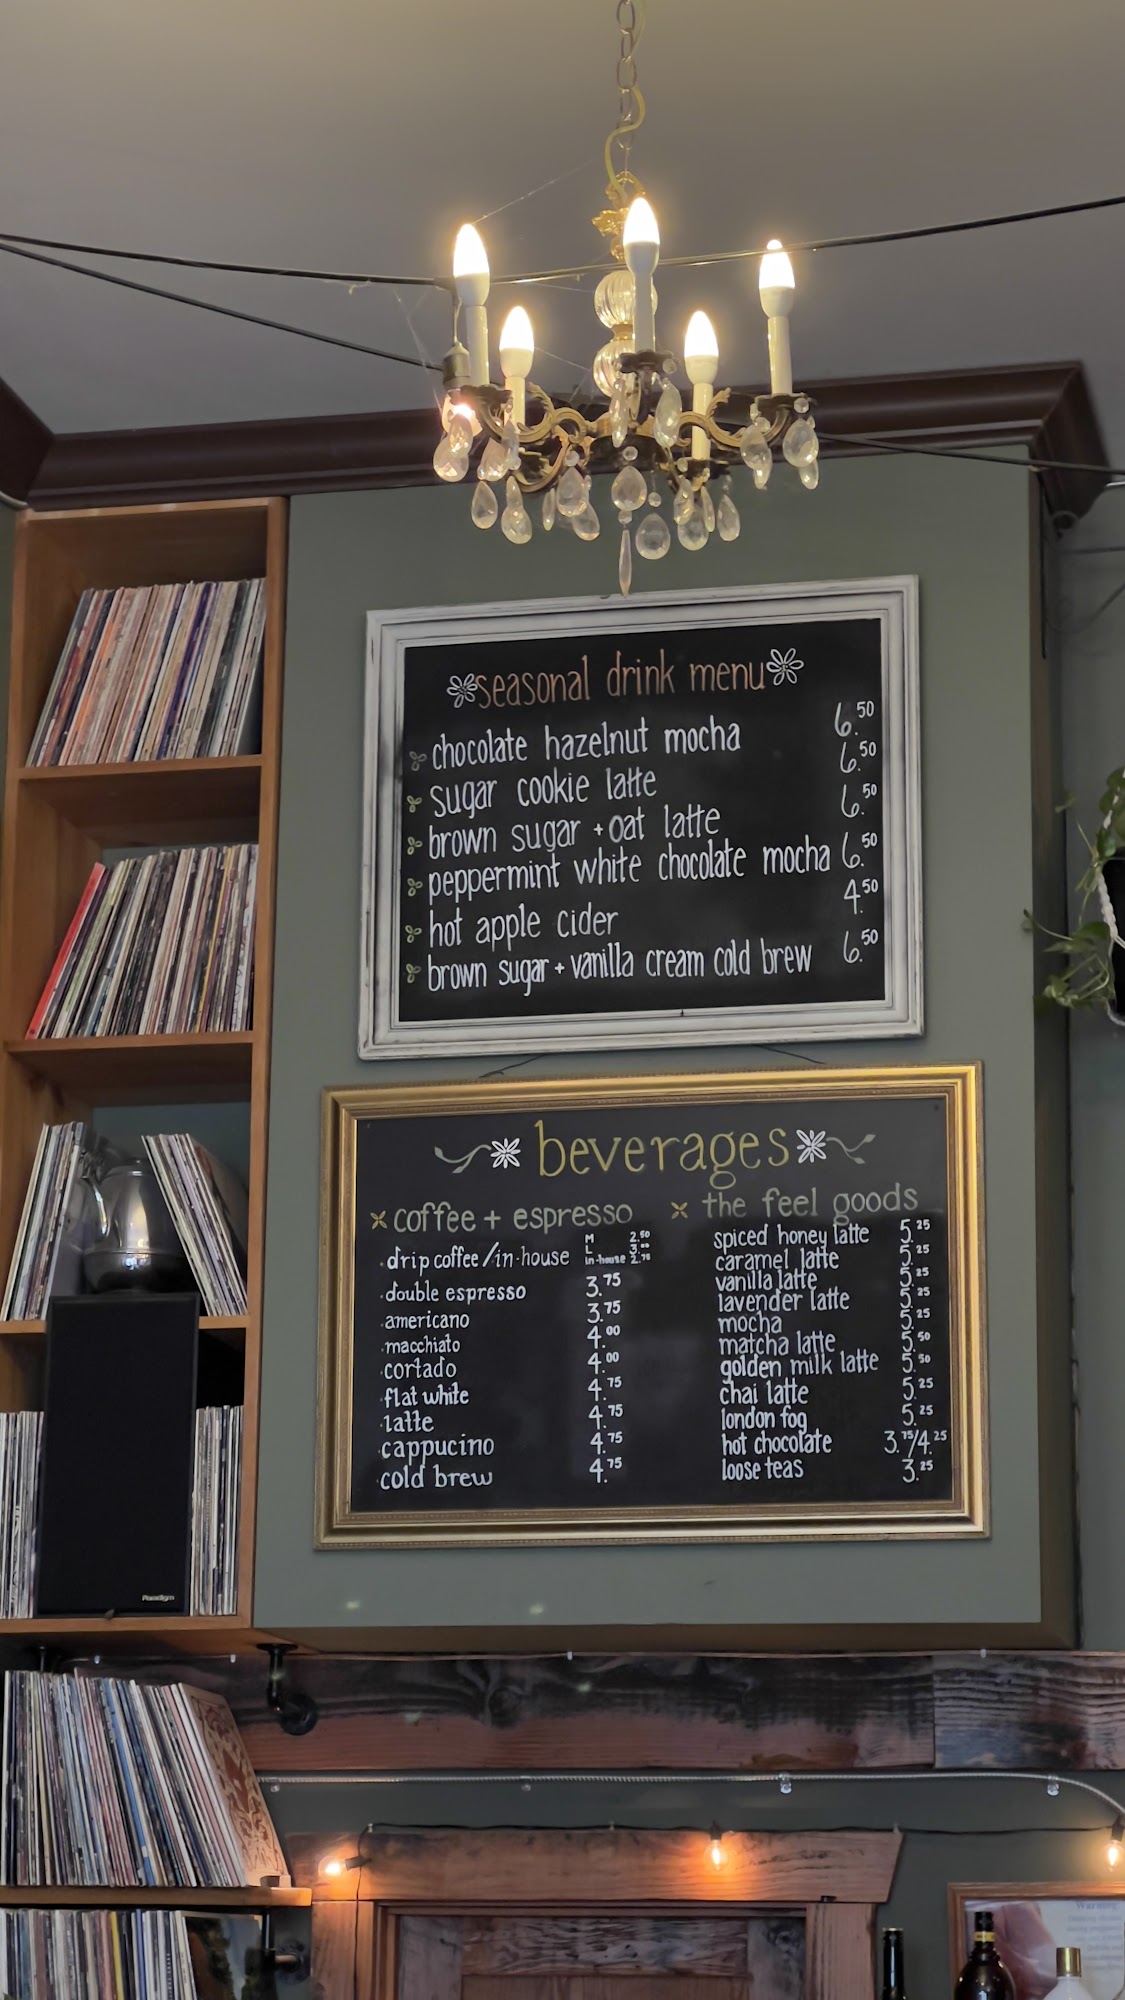 seasonal drink menu
chocolate hazelnut mocha 6.50
sugar cookie latte 6.50
brown sugar + oat latte 6.50
peppermint white chocolate mocha 6.50
hot apple cider 4.50
brown sugar + vanilla cream cold brew 6.50
beverages
coffee + espresso
drip coffee / in-house M 2.50
L 3.00
in-house 2.75
double espresso 3.75
americano 3.75
macchiato 4.00
cortado 4.00
flat white 4.75
latte 4.75
cappucino 4.75
cold brew 4.75
the feel goods
spiced honey latte 5.25
caramel latte 5.25
vanilla latte 5.25
lavender latte 5.25
mocha 5.25
matcha latte 5.50
golden milk latte 5.50
chai latte 5.25
london fog 5.25
hot chocolate 3.75/4.25
loose teas 3.25
Paradigm
Warning